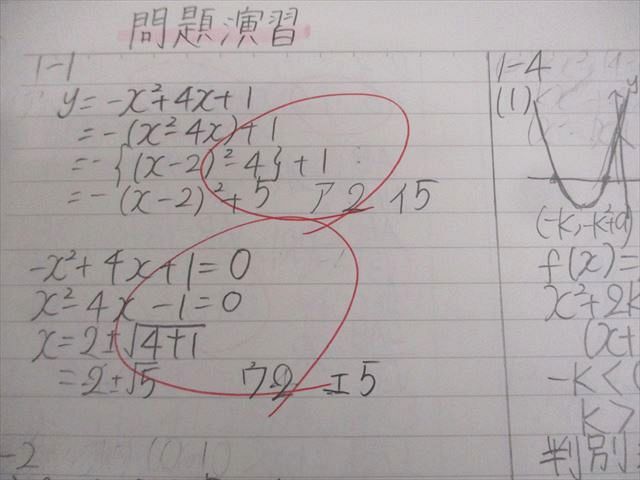 問題演習
1-1
y=-x²+4x+1
=-(x²-4x)+1
=-{(x-2)²-4}+1
=-(x-2)²+5 ア2 イ5
-x²+4x+1=0
x²-4x-1=0
x=2±√4+1
=2±√5 ウ2 エ5
-2
1-4
(1)
y
(-k,-k²+a)
f(x)=
x²+2k
(x+
-k<
k>
判別